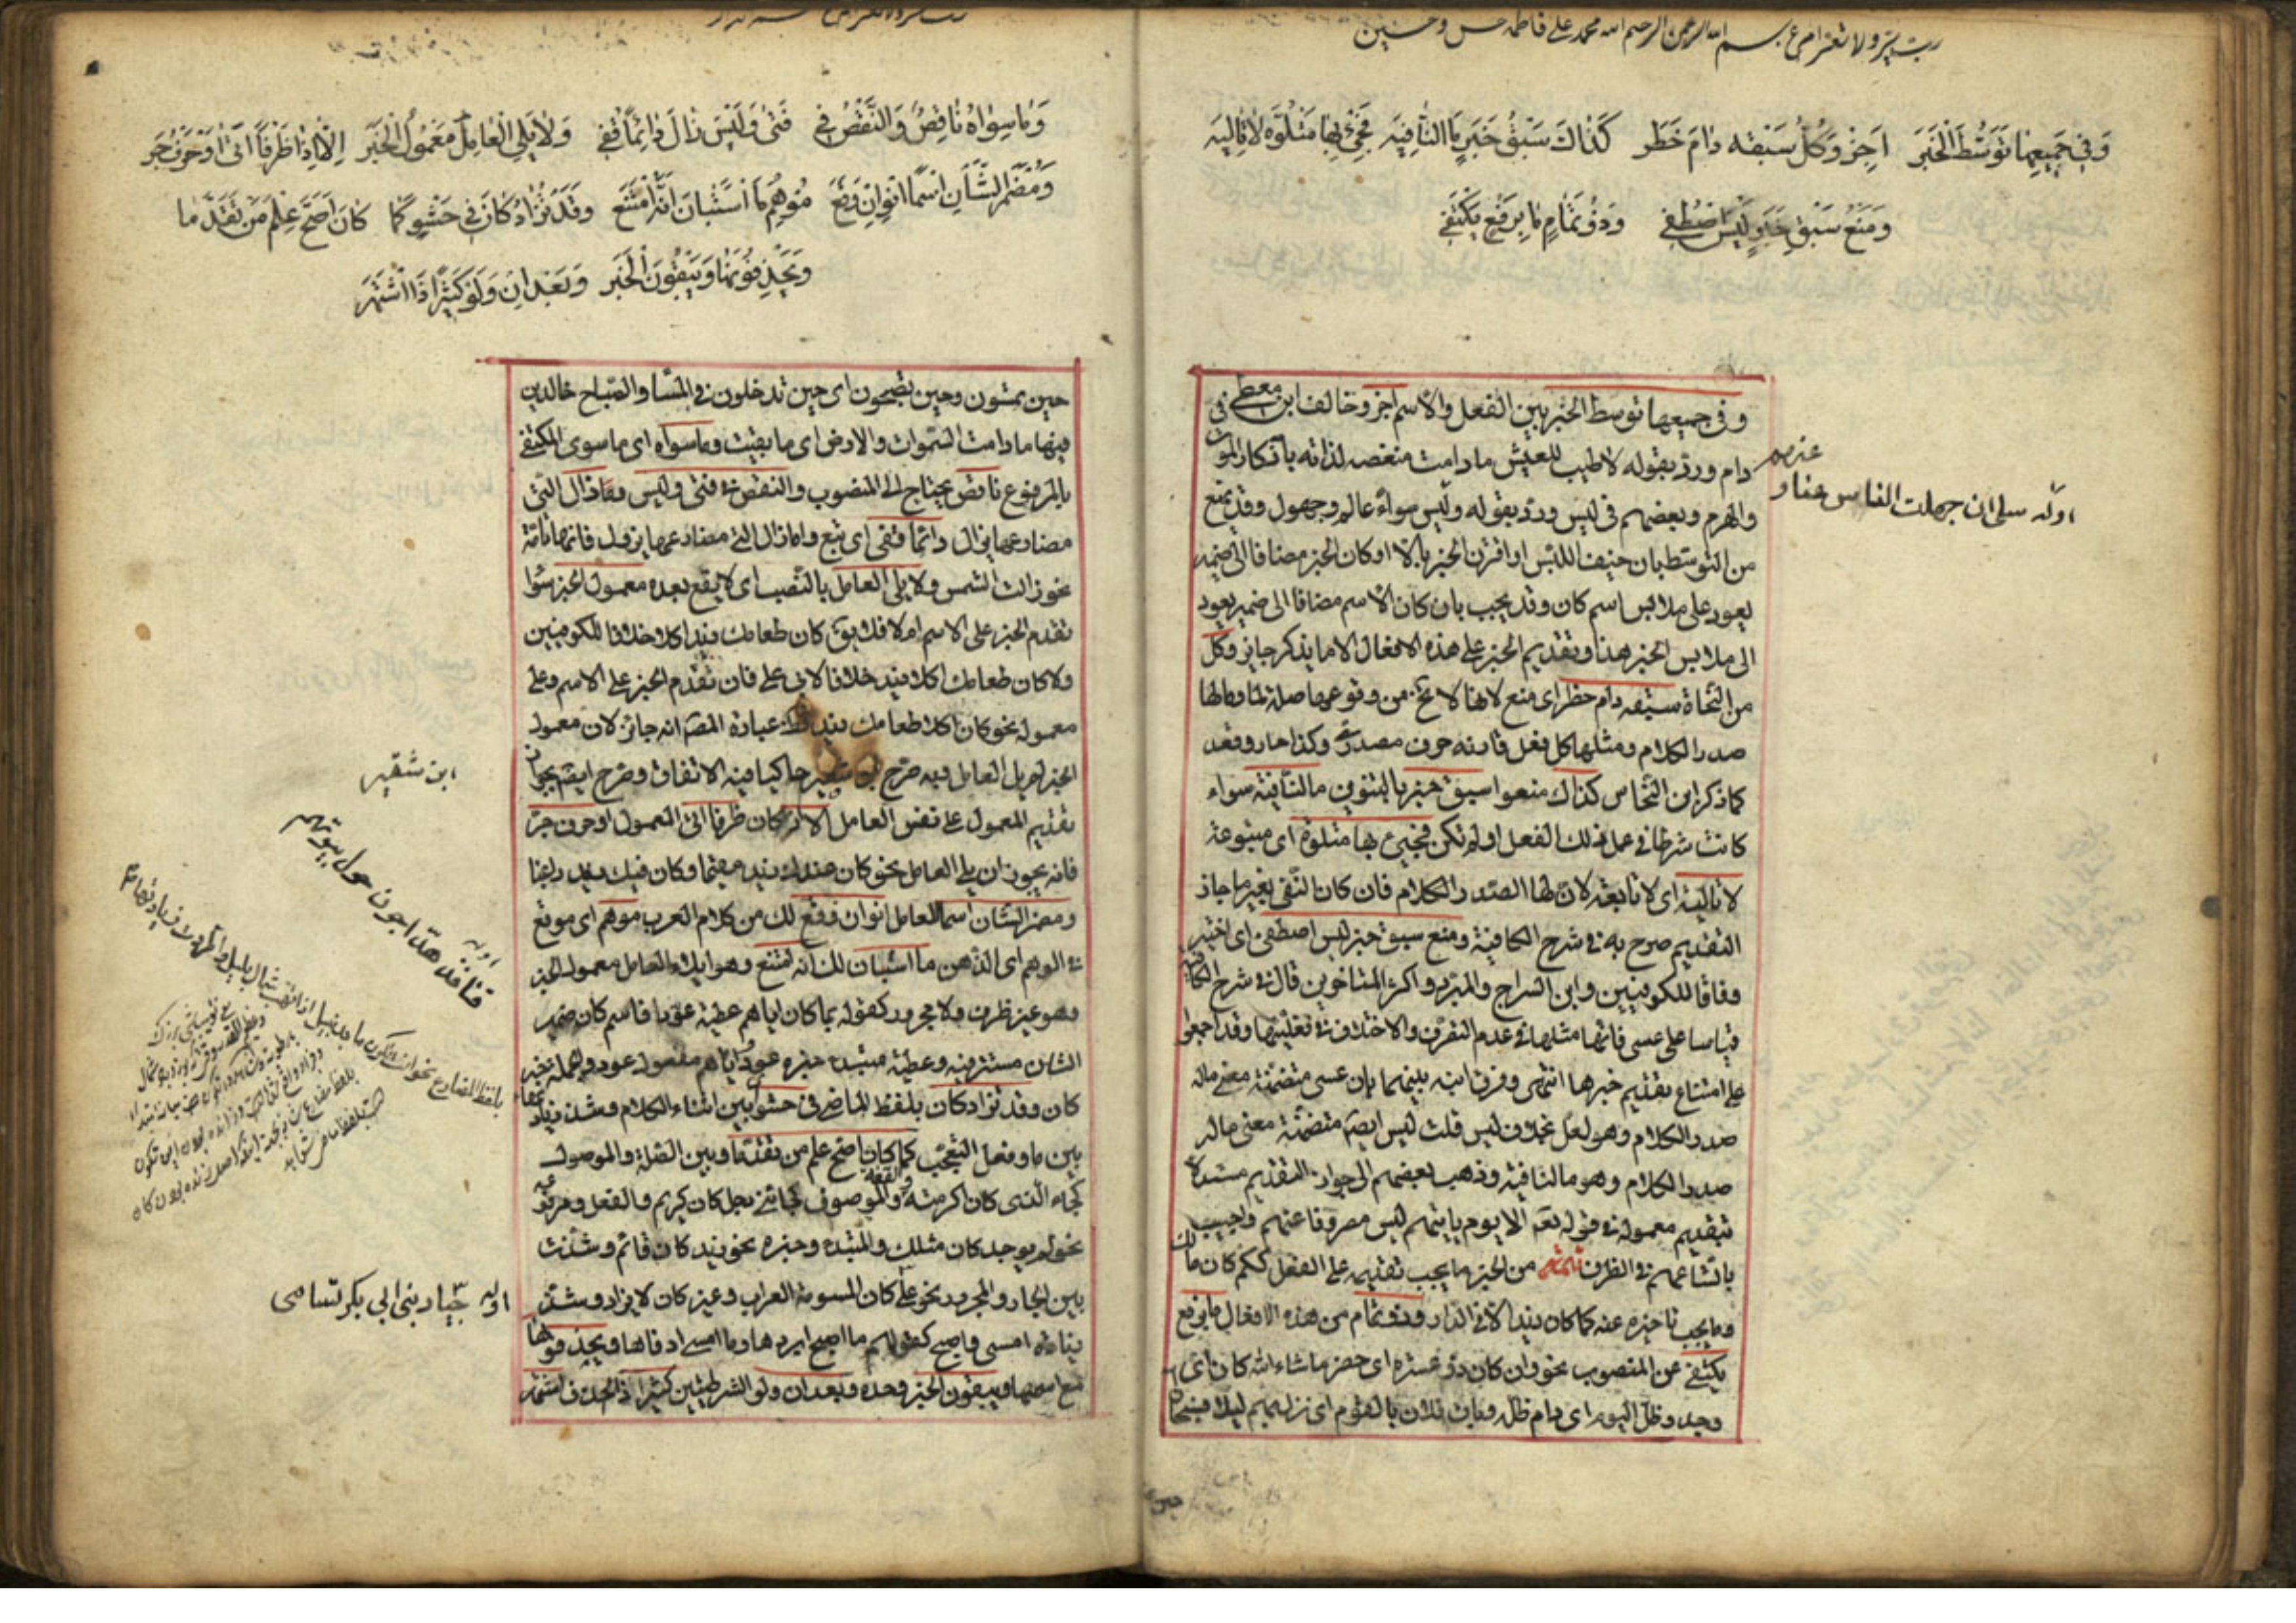 رب يسر ولا تعسر بسم الله الرحمن الرحيم الله محمد علي فاطمه حسن وحسين
وَفي جَميعِها تَوَسُّطَ الْخَبَر اَجِزْ وَكُلٌّ سَبْقَه دامَ حَظَر كَذاكَ سَبْقُ خَبَرٍ مَا النّافِيَه فَجِئْ بِها مَتْلُوَّةً لا تالِيَه
وَمَنْعُ سَبْقِ خَبَرٍ لَيْسَ اصْطُفي وَذُو تَمامٍ ما بِرَفْعٍ يَكْتَفي
وفي جميعها توسط الخبر بين الفعل والاسم اجز وخالف ابن معط في
دام ورد بقوله لا طيب للعيش ما دامت منغصه لذاته بادكار الموت
والهرم وبعضهم في ليس ورد بقوله وليس سواء عالم وجهول وقد يمنع
من التوسط بان خيف اللبس او اقترن الخبر بالا او كان الخبر مضافا الى ضمير
يعود على ملابس اسم كان وقد يجب بان كان الاسم مضافا الى ضمير يعود
الى ملابس الخبر هذا وتقديم الخبر على هذه الافعال الا ما يذكر جايز وكل
من النحاة سبقه دام حظر اى منع لانها لا تخ من وقوعها صلة لما وما لها
صدر الكلام ومثلها كل فعل قارنه حرف مصدرى وكذا حار وقعد
كما ذكر ابن النحاس كذاك منعوا سبق خبر بالتنوين ما النافية سواء
كانت شرطا في عمل ذلك الفعل او لم تكن فجئ بها متلوة اى متبوعة
لا تالية اى لا تابعة لان لها الصدر والكلام فان كان النفى بغير ما جاز
التقديم صرح به في شرح الكافية ومنع سبق خبر ليس اصطفى اى اختير
وفاقا للكوفيين وابن السراج والمبرد واكثر المتاخرين قال في شرح الكافية
قياسا على عسى فانها مثلها في عدم التصرف والاختلاف في فعليتها وقد اجمعوا
على امتناع تقديم خبرها انتهى وفرق ابنه بينهما بان عسى متضمنة معنى ماله
صدر الكلام وهو لعل بخلاف ليس قلت ليس ايضا متضمنة معنى ماله
صدر الكلام وهو ما النافية وذهب بعضهم الى جواز التقديم مستدلا
بتقديم معموله في قوله تعه الا يوم ياتيهم ليس مصروفا عنهم واجيب
باتساعهم في الظرف تتمة من الخبر ما يجب تقديمه على الفعل ككم كان مالك
وما يجب تاخيره عنه كما كان زيد الا في الدار وذو تمام من هذه الافعال ما برفع
يكتفى عن المنصوب نحو وان كان ذو عسرة اى حضر ما شاء الله كان اى
وجد وظل اليوم اى دام ظله وبات فلان بالقوم اى نزل بهم ليلا فسبحان
اوله سلى ان جهلت الناس عنا و
عنهم
وَما سِواهُ ناقِصٌ وَالنَّقْصُ في فَتِئَ وَلَيْسَ زالَ دائِماً قُفي وَلا يَلِي الْعامِلَ مَعْمُولُ الْخَبَر اِلّا اِذا ظَرْفاً اَتى اَوْ حَرْفَ جَر
وَمُضْمَرَ الشّانِ اسْماً انْوِ اِنْ وَقَع مُوهِمُ مَا اسْتَبانَ اَنَّهُ امْتَنَع وَقَدْ تُزادُ كانَ في حَشْوٍ كَما كانَ اَصَحَّ عِلْمَ مَنْ تَقَدَّما
وَيَحْذِفُونَها وَيُبْقُونَ الْخَبَر وَبَعْدَ اِنْ وَلَوْ كَثيراً ذَا اشْتَهَر
حين تمسون وحين تصبحون اى حين تدخلون في المساء والصباح خالدين
فيها ما دامت السموات والارض اى ما بقيت وما سواه اى ما سوى المكتفى
بالمرفوع ناقص يحتاج الى المنصوب والنقص في فتئ وليس وزال التى
مضارعها يزال دائما قفى اى تبع واما زال التى مضارعها يزول فانها تامة
نحو زالت الشمس ولا يلى العامل بالنصب اى لا يقع بعده معمول الخبر سواء
تقدم الخبر على الاسم ام لا فلا يق كان طعامك زيد اكلا خلافا للكوفيين
ولا كان طعامك اكلا زيد خلافا لابى على فان تقدم الخبر على الاسم وعلى
معموله نحو كان اكلا طعامك زيد عبارة المصنف انه جائز لان معمول
الخبر لم يل العامل وبه صرح ابن شقير حاكيا فيه الاتفاق وصرح ايضا بجواز
تقديم المعمول على نفس العامل الا اذا كان ظرفا اتى المعمول او حرف جر
فانه يجوز ان يلى العامل نحو كان عندك زيد مقيما وكان فيك زيد راغبا
ومضمر الشان اسما للعامل انو ان وقع لك من كلام العرب موهم اى موقع
في الوهم اى الذهن ما استبان لك انه امتنع وهو ايلاء العامل معمول الخبر
وهو غير ظرف ولا مجرور كقوله بما كان اياهم عطية عودا فاسم كان ضمير
الشان مستتر فيه وعطية مبتدء خبره عود واياهم مفعول عود والجملة خبر
كان وقد تزاد كان بلفظ الماضى في حشو اى بين اثناء الكلام وشذ زيادتها
بين ما وفعل التعجب كما كان اصح علم من تقدما وبين الصلة والموصول
كجاء الذى كان اكرمته والصفة والموصوف كجائنى رجل كان كريم والفعل ومرفوعه
نحو لم يوجد كان مثلك والمبتدء وخبره نحو زيد كان قائم وشذت
بين الجار والمجرور نحو على كان المسومة العراب وغير كان لا يزاد وشذ
زيادة امسى واصبح كقولهم ما اصبح ابردها وما امسى ادفاها ويحذفونها
مع اسمها ويبقون الخبر وحده وبعد ان ولو الشرطيتين كثيرا ذا الحذف اشتهر
ابن شقير
اوله
قنافذ هداجون حول بيوتهم
اوله جياد بنى ابى بكر تسامى